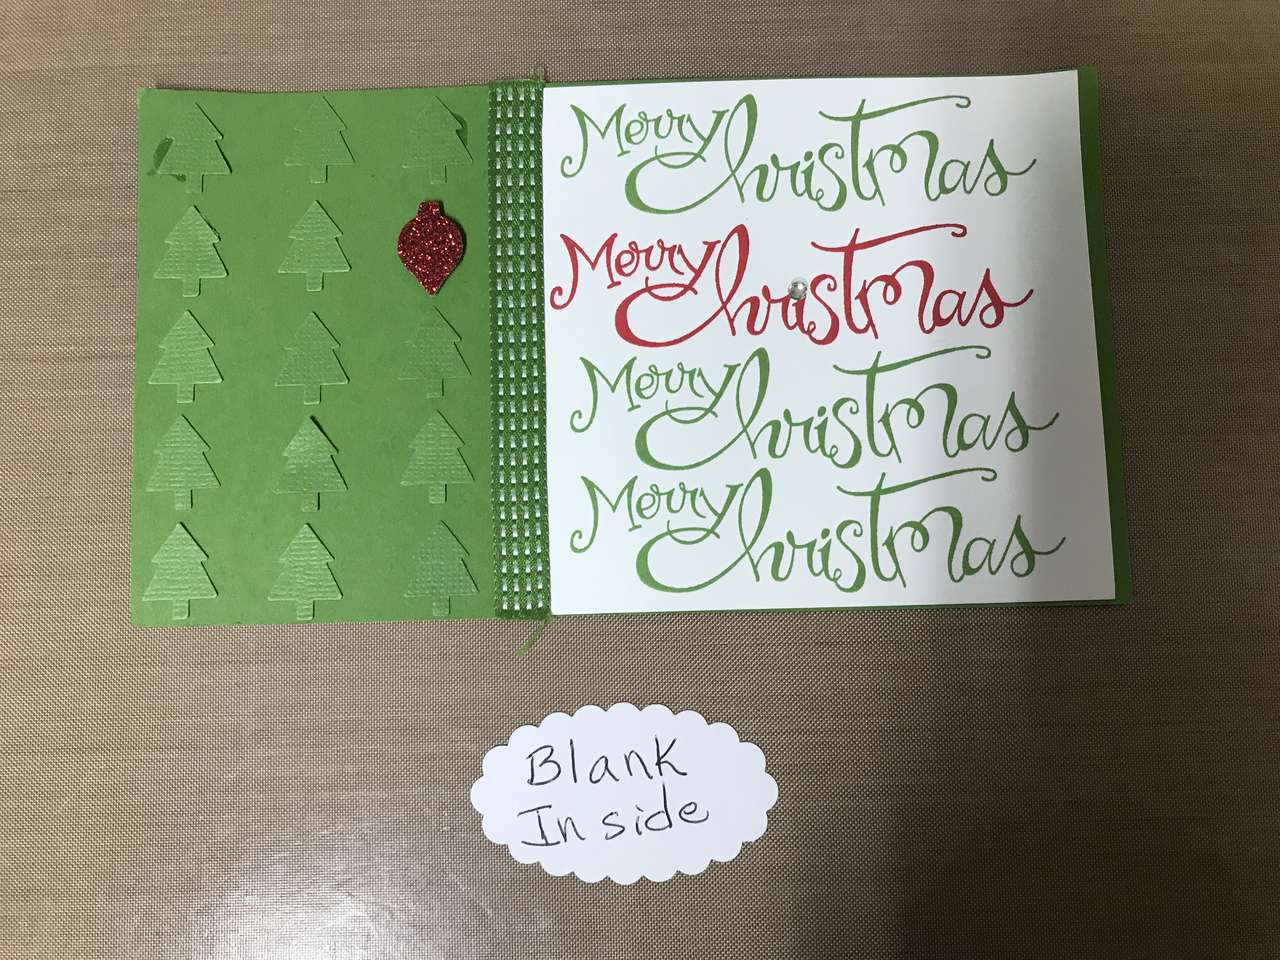 Merry Christmas
Merry Christmas
Merry Christmas
Merry Christmas
Blank
Inside